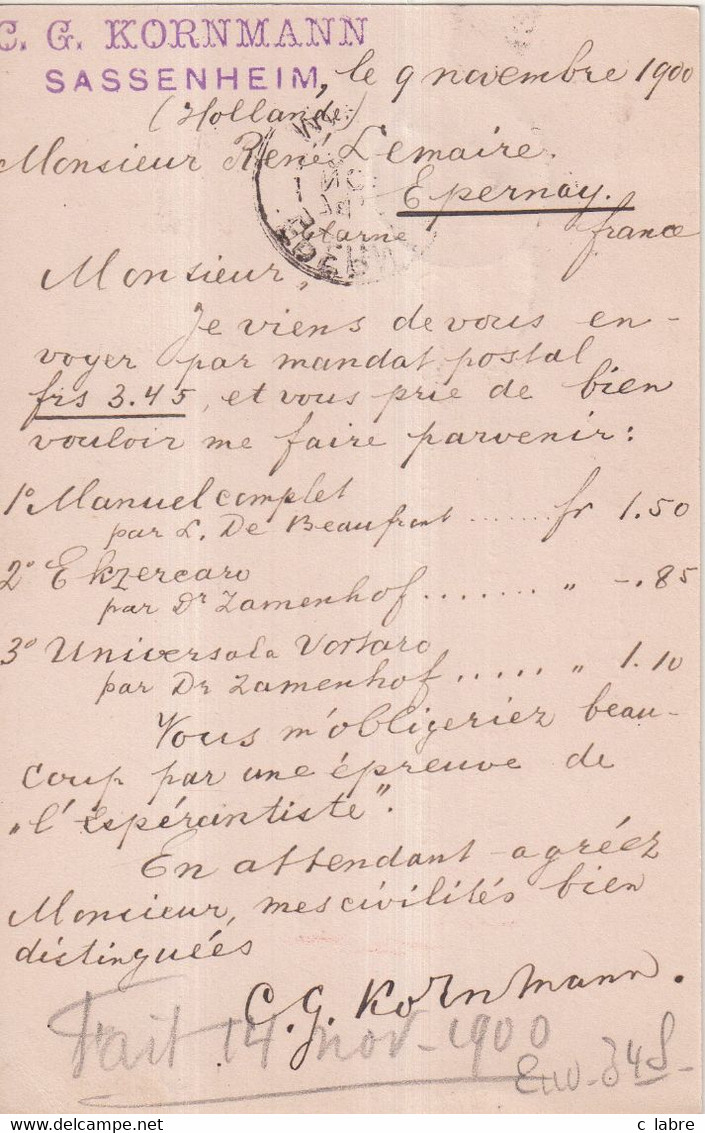 C. G. KORNMANN
SASSENHEIM, le 9 novembre 1900
(Hollande)
Monsieur René Lemaire.
Epernay.
Marne france
Monsieur,
Je viens de vous en-
voyer par mandat postal
frs 3.45, et vous prie de bien
vouloir me faire parvenir:
1° Manuel complet
par L. De Beaufront ....... fr 1.50
2° Ekzercaro
par Dr Zamenhof ........ " -.85
3° Universala Vortaro
par Dr Zamenhof ..... " 1.10
Vous m'obligeriez beau-
coup par une épreuve de
"l'Espérantiste".
En attendant agréez
Monsieur, mes civilités bien
distinguées
C. G. Kornmann.
Fait 14 nov- 1900
c labre